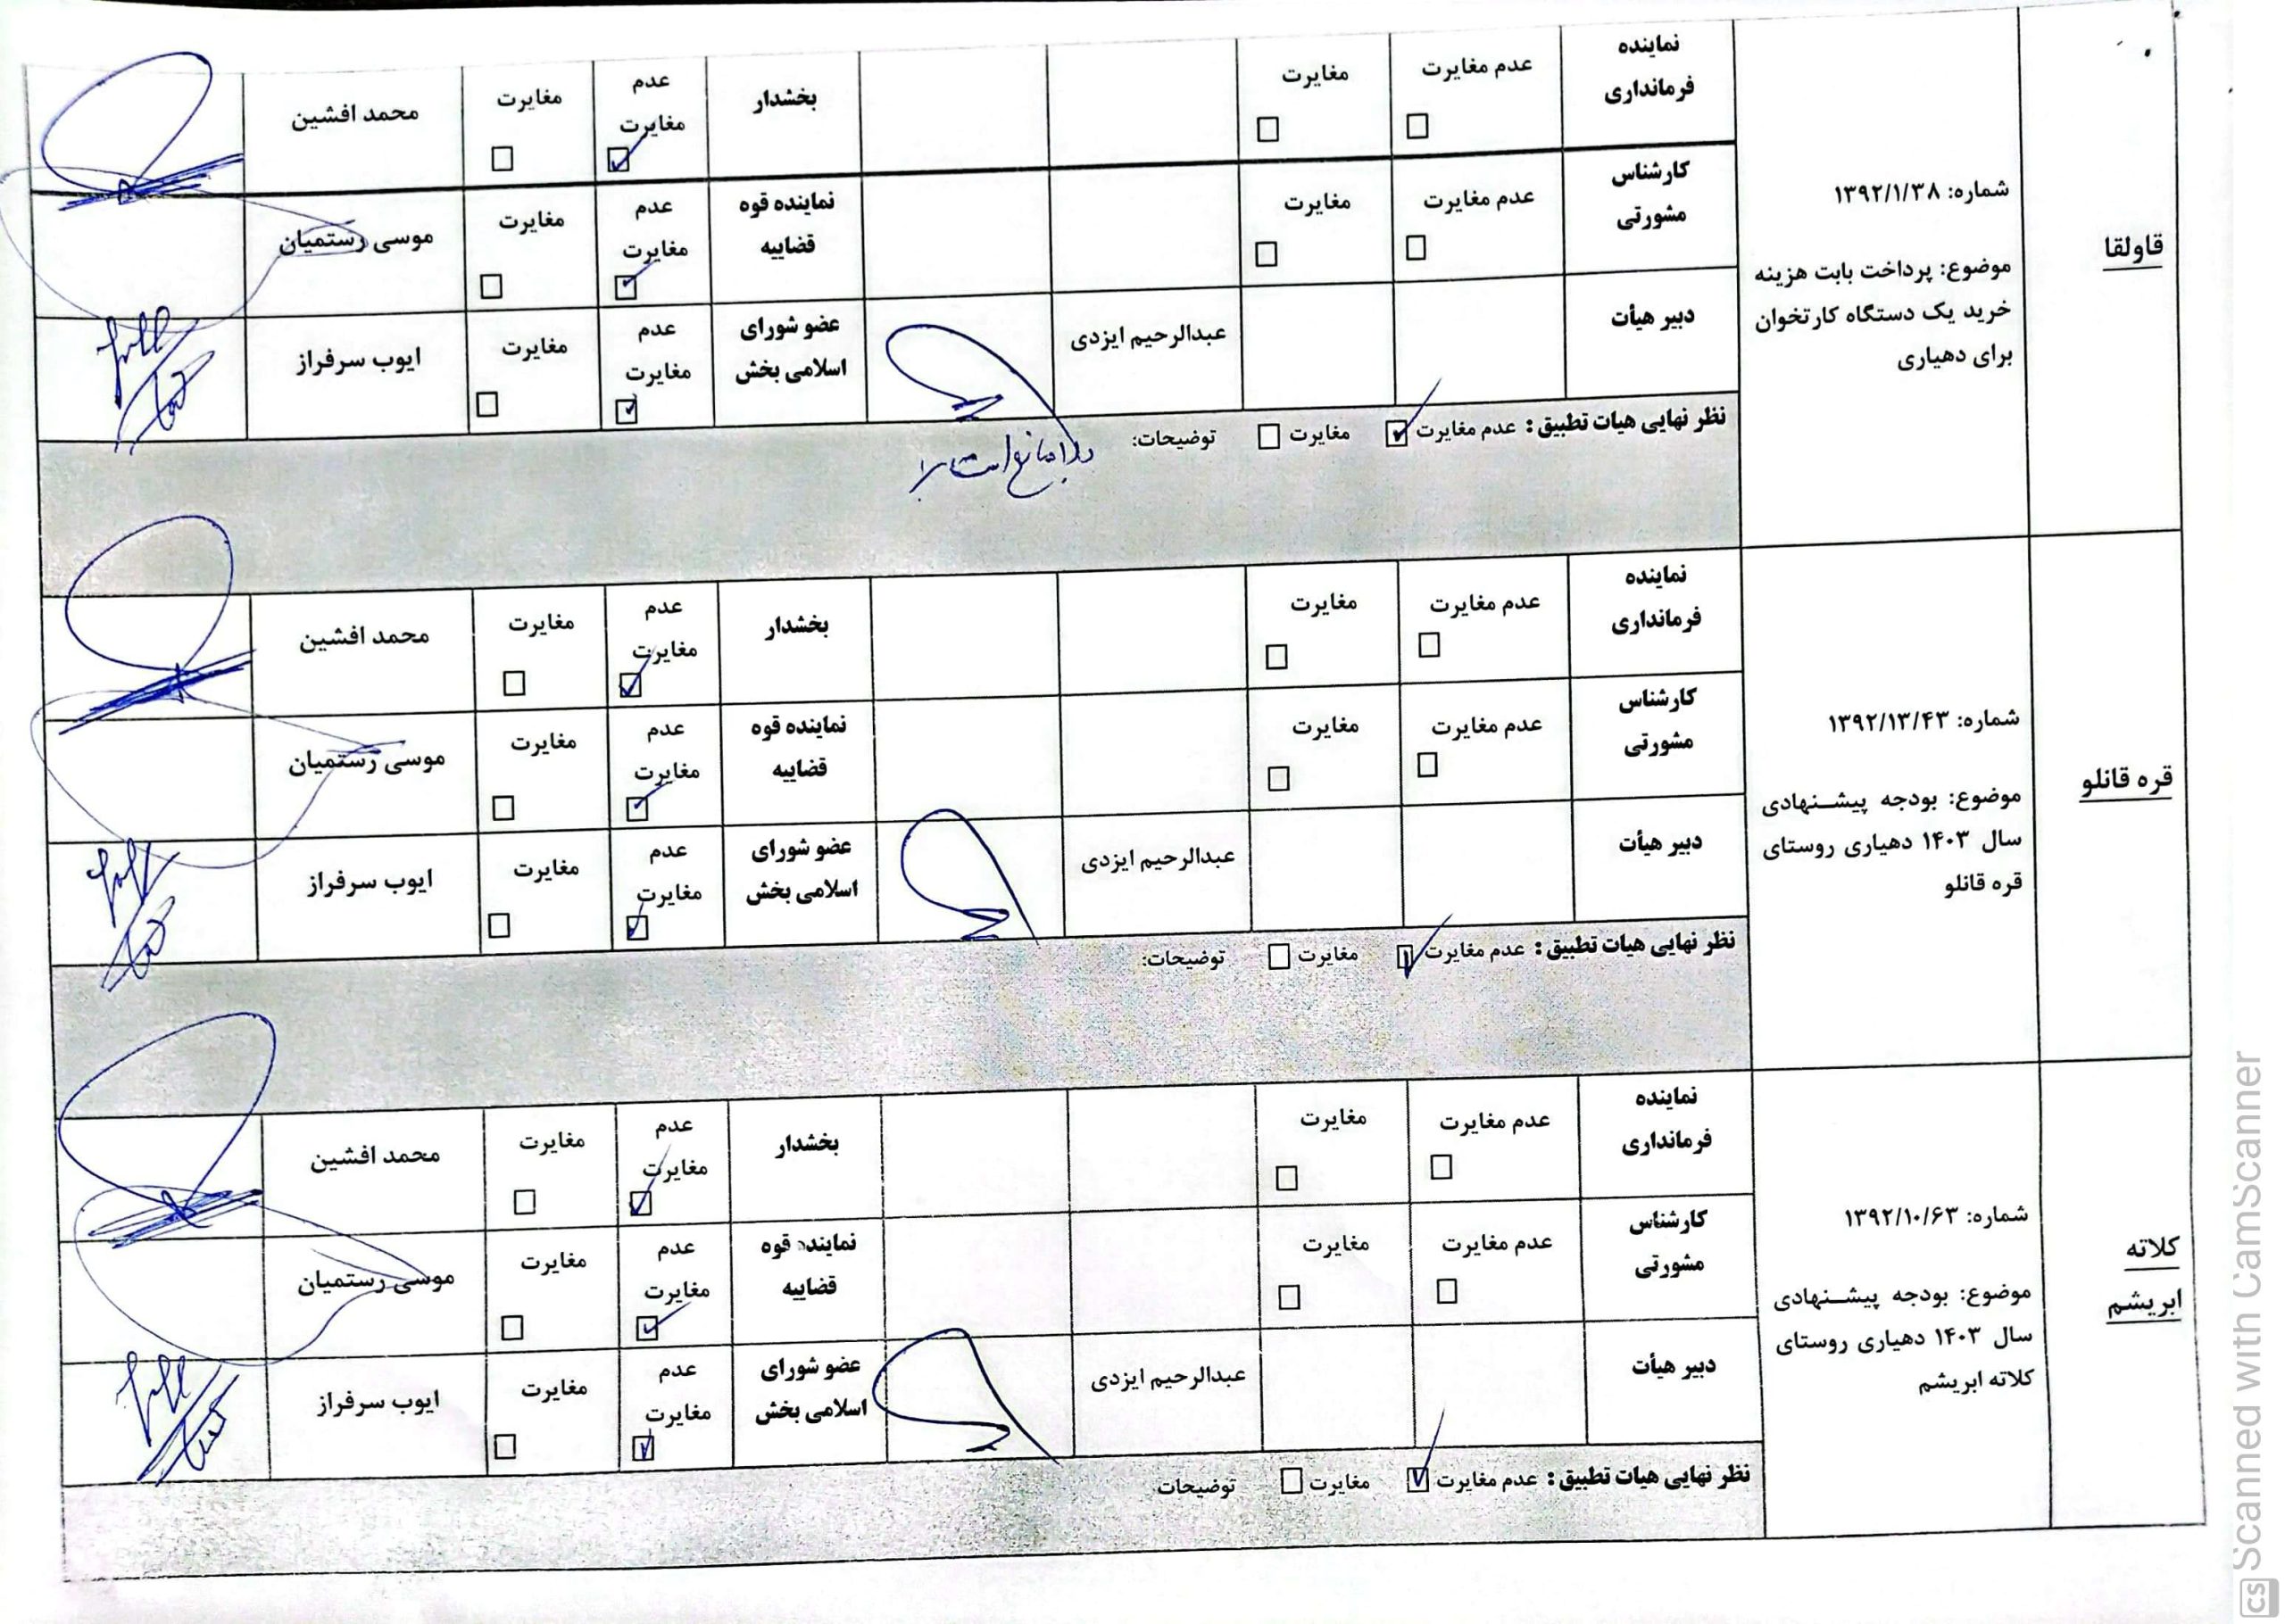 قاولقا
شماره: ۱۳۹۲/۱/۳۸
موضوع: پرداخت بابت هزینه
خرید یک دستگاه کارتخوان
برای دهیاری
نماینده
فرمانداری
عدم مغایرت
مغایرت
بخشدار
عدم
مغایرت
مغایرت
محمد افشین
کارشناس
مشورتی
عدم مغایرت
مغایرت
نماینده قوه
قضاییه
عدم
مغایرت
مغایرت
موسی رستمیان
دبیر هیأت
عبدالرحیم ایزدی
عضو شورای
اسلامی بخش
عدم
مغایرت
مغایرت
ایوب سرفراز
نظر نهایی هیات تطبیق: عدم مغایرت مغایرت توضیحات:
قره قانلو
شماره: ۱۳۹۲/۱۳/۴۳
موضوع: بودجه پیشنهادی
سال ۱۴۰۳ دهیاری روستای
قره قانلو
نماینده
فرمانداری
عدم مغایرت
مغایرت
بخشدار
عدم
مغایرت
مغایرت
محمد افشین
کارشناس
مشورتی
عدم مغایرت
مغایرت
نماینده قوه
قضاییه
عدم
مغایرت
مغایرت
موسی رستمیان
دبیر هیأت
عبدالرحیم ایزدی
عضو شورای
اسلامی بخش
عدم
مغایرت
مغایرت
ایوب سرفراز
نظر نهایی هیات تطبیق: عدم مغایرت مغایرت توضیحات:
کلاته
ابریشم
شماره: ۱۳۹۲/۱۰/۶۳
موضوع: بودجه پیشنهادی
سال ۱۴۰۳ دهیاری روستای
کلاته ابریشم
نماینده
فرمانداری
عدم مغایرت
مغایرت
بخشدار
عدم
مغایرت
مغایرت
محمد افشین
کارشناس
مشورتی
عدم مغایرت
مغایرت
نماینده قوه
قضاییه
عدم
مغایرت
مغایرت
موسی رستمیان
دبیر هیأت
عبدالرحیم ایزدی
عضو شورای
اسلامی بخش
عدم
مغایرت
مغایرت
ایوب سرفراز
نظر نهایی هیات تطبیق: عدم مغایرت مغایرت توضیحات
CS Scanned with CamScanner